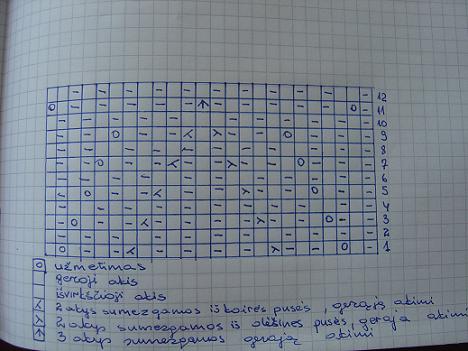 12
11
10
9
8
7
6
5
4
3
2
1
O užmetimas
geroji akis
išvirkščioji akis
2 akys sumezgamos iš kairės pusės, gerąja akimi
2 akys sumezgamos iš dešinės pusės, gerąja akimi
3 akys sumezgamos gerąja akimi